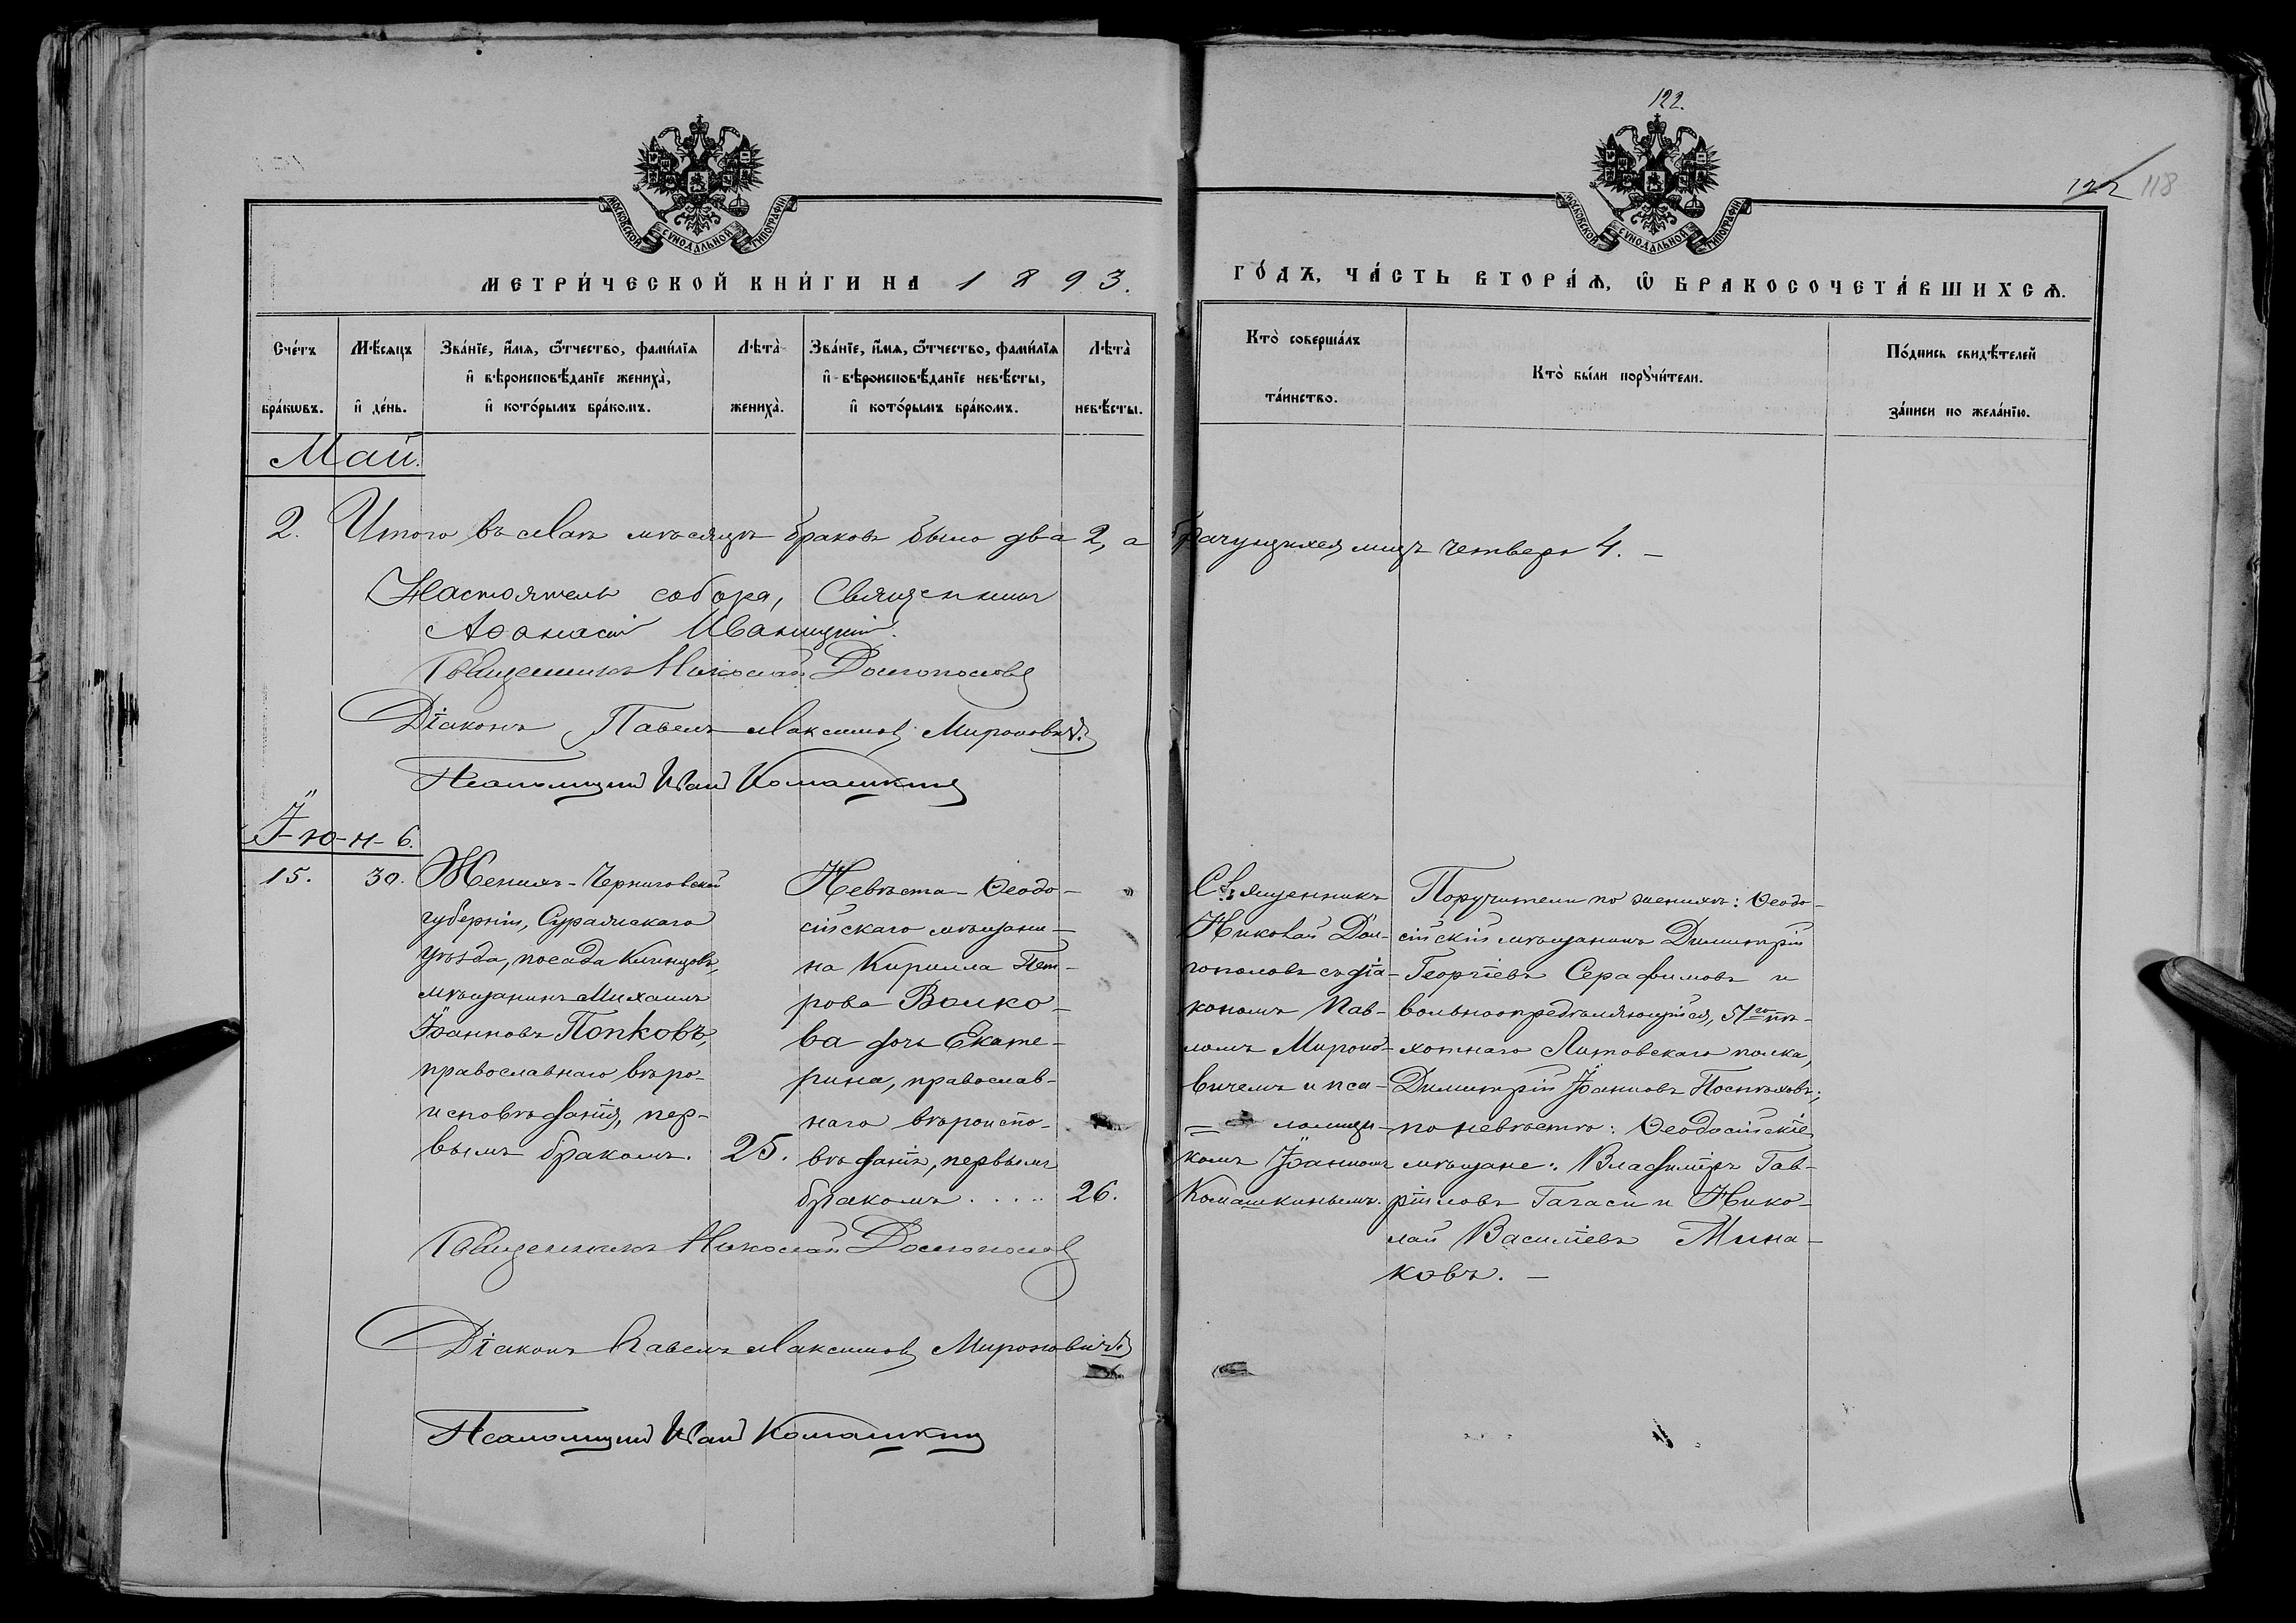 122.
122 118
МОСКОВСКОЙ СѴНОДАЛЬНОЙ ТИПОГРАФІИ
МОСКОВСКОЙ СѴНОДАЛЬНОЙ ТИПОГРАФІИ
МЕТРИ́ЧЕСКОЙ КНИ́ГИ НА 1893.
ГО́ДЪ, ЧА́СТЬ ВТОРА́Ѧ, Ѽ БРАКОСОЧЕТА́ВШИХСѦ.
Сче́тъ бра́кѡвъ.
Мѣ́сяцъ и҆ де́нь.
Зва́нїе, и҆́мѧ, ѻ҆́тчество, фами́лїѧ и҆ вѣроисповѣ́данїе жениха̀, и҆ кото́рымъ бра́комъ.
Лѣта̀ жениха̀.
Зва́нїе, и҆́мѧ, ѻ҆́тчество, фами́лїѧ и҆ вѣроисповѣ́данїе невѣ́сты, и҆ кото́рымъ бра́комъ.
Лѣта̀ невѣ́сты.
Кто̀ соверша́лъ та́инство.
Кто̀ бы́ли порꙋчи́тели.
По́дпись свидѣ́телей за́писи по жела́нїю.
Май.
2. Итого въ Маѣ мѣсяцѣ браковъ было два 2, а брачущихся лицъ четверо 4. –
Настоятель собора, Священникъ
Аѳанасій Иваницкій.
Священникъ Николай Долгополовъ
Діаконъ Павелъ Максимов Мироновичъ.
Псаломщикъ Иван Комашкин
І-ю-н-ь.
15. 30. Женихъ - Черниговской
губерніи, Суражскаго
уѣзда, посада Клинцовъ,
мѣщанинъ Михаилъ
Іоанновъ Попковъ,
православнаго вѣро-
исповѣданія, пер-
вымъ бракомъ. 25.
Невѣста - Ѳеодо-
сійскаго мѣщани-
на Кирилла Пет-
рова Волко-
ва дочь Екате-
рина, православ-
наго вѣроиспо-
вѣданія, первымъ
бракомъ . . . . 26.
Священникъ
Николай Дол-
гополовъ съ діа-
кономъ Пав-
ломъ Мироно-
вичемъ и пса-
ломщи-
комъ Іоанномъ
Комашкинымъ.
Поручители по женихѣ: Ѳеодо-
сійскій мѣщанинъ Димитрій
Георгіевъ Серафимовъ и
вольноопредѣляющійся, 51го пѣ-
хотнаго Литовскаго полка,
Димитрій Іоанновъ Поспѣховъ;
по невѣстѣ: Ѳеодосійскіе
мѣщане: Владиміръ Гав-
ріиловъ Гагаси и Нико-
лай Василіевъ Мина-
ковъ. –
Священникъ Николай Долгополов
Діаконъ Павелъ Максимов Мироновичъ
Псаломщикъ Иван Комашкин